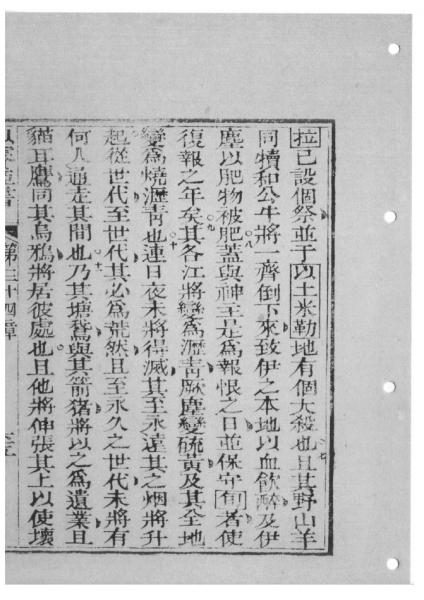 拉已設個祭並于以土米勒地有個大殺也七且其野山羊
同犢和公牛將一齊倒下來致伊之本地以血飲醉及伊
塵以肥物被肥八蓋與神主是為報恨之日並保守旬者使
復報之年矣九其各江將變為瀝青厥塵變硫黃及其全地
變為燒瀝青也十連日夜未將得滅其至永遠其之烟將升
起從世代至世代其必為荒然且至永久之世代未將有
何人過是其間也十一乃其塘鵞與其箭猪將以之為遺業且
貓耳鷹同其烏鴉將居彼處也且他將伸張其上以使壞
第三十四章